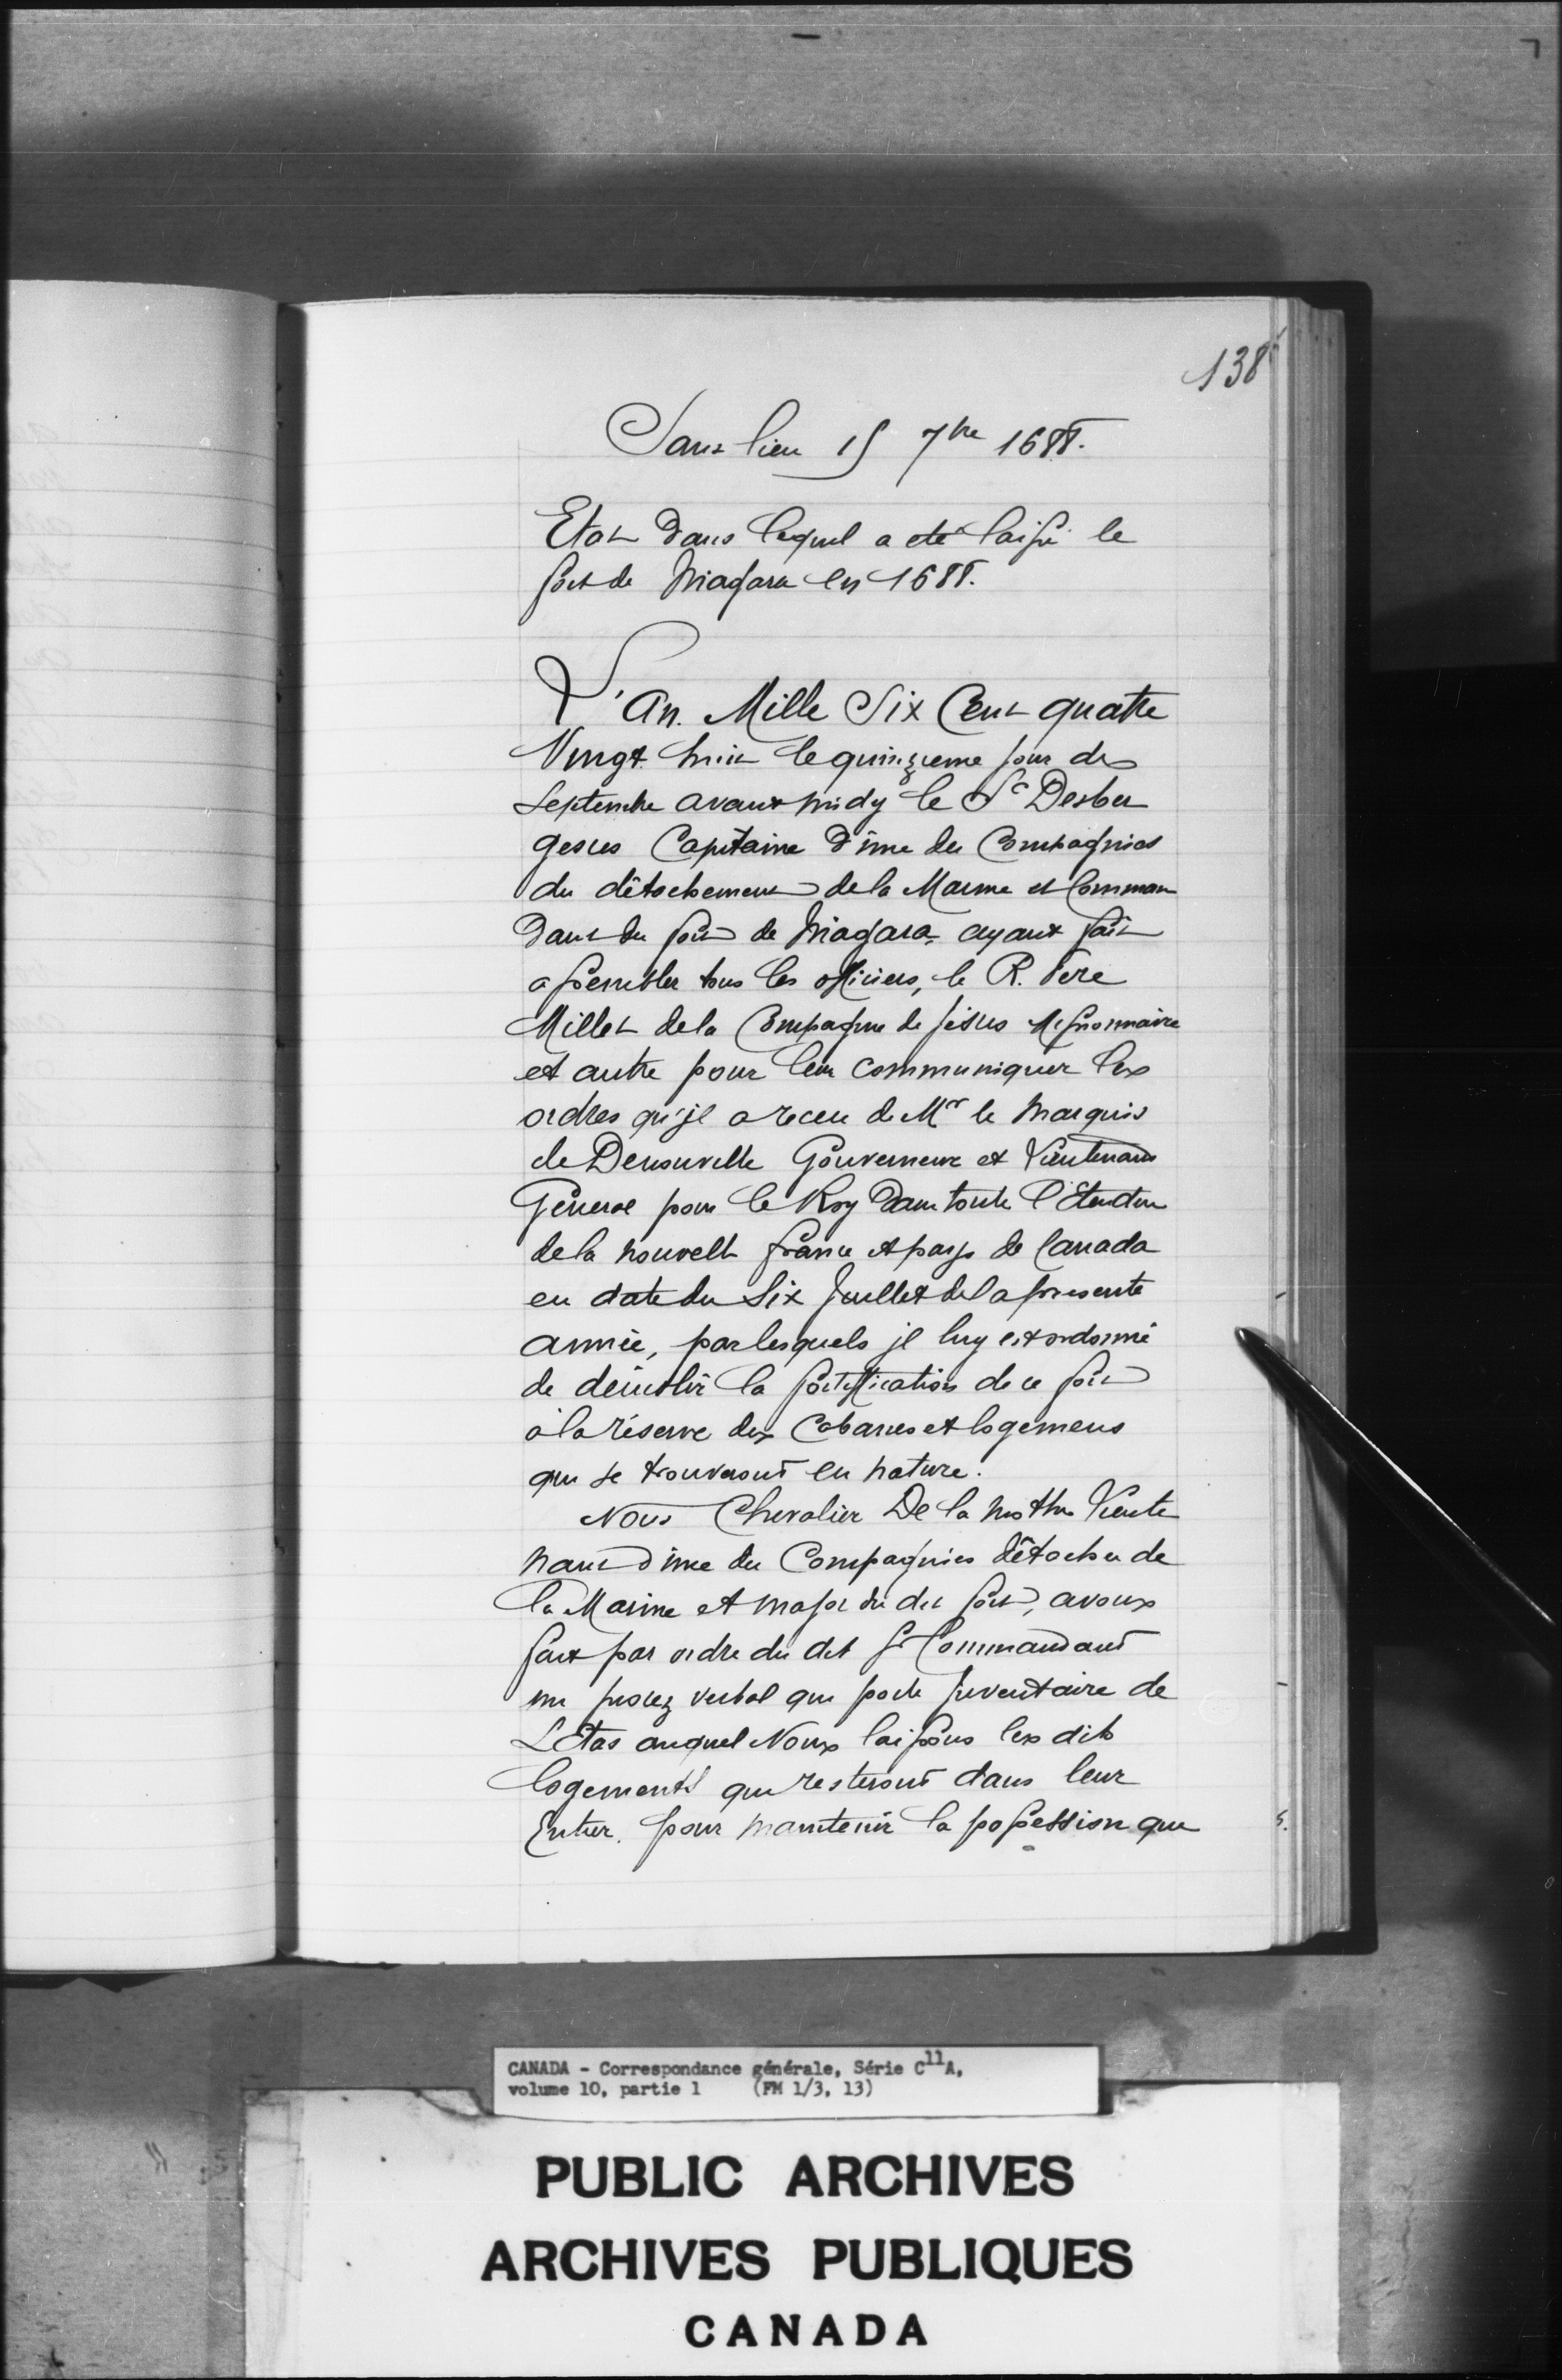 138
Sans lieu 15 7bre 1688.
Etat dans lequel a eté laissé le
fort de Niagara en 1688.
L'An. Mille Six Cent quatre
Vingt huit le quinzieme jour de
Septembre avant midy le Sr Desber
geres Capitaine d'une des Compagnies
du détachement de la Marine et Comman
dant du fort de Niagara, ayant fait
assembler tous les officiers, le R. Pere
Millet de la Compagnie de Jésus Missionnaire
et autre pour leur communiquer les
ordres qu'jl a receu de Mr le Marquis
de Denonville Gouverneur et Lieutenant
Géneral pour le Roy dans toute l'Etendue
de la nouvelle france et pays de Canada
en date du Six Juillet de la presente
année, par lesquels jl luy est ordonné
de démolir la fortiffication de ce fort
à la réserve des Cabanes et logemens
qui se trouveront en nature.
Nous Chevalier De la Mothe Lieute
nant d'une des Compagnies détachée de
la Marine et major du dit fort, avons
fait par ordre du dit Sr Commandant
un procez verbal qui porte jnventaire de
L'Etat auquel Nous laissons les dits
logements qui resteront dans leur
Entier. pour maintenir la possession que
CANADA - Correspondance générale, Série C11A,
volume 10, partie 1 (FM 1/3, 13)
PUBLIC ARCHIVES
ARCHIVES PUBLIQUES
CANADA